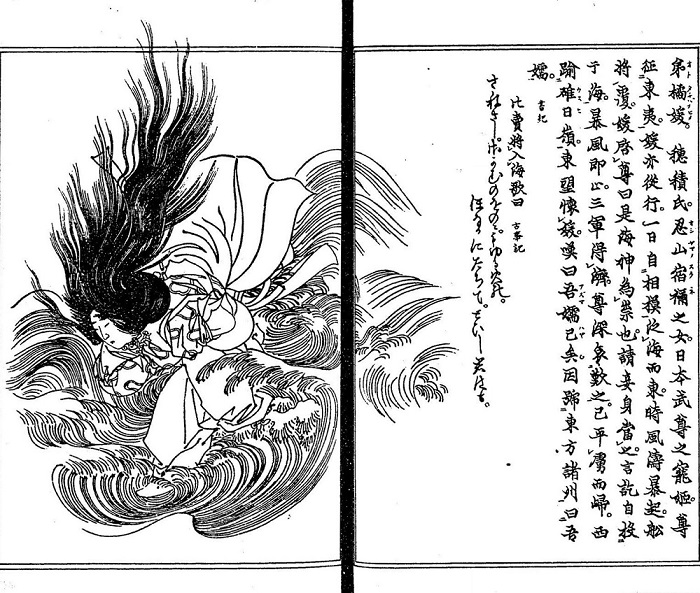 弟橘媛。穂積氏。忍山宿禰之女日本武尊之寵姫。尊
征東夷。媛亦從行。一日自相摸泛海而東。時風濤暴起。舩
將覆。媛啓尊曰是海神為祟也。請妾身當之。言訖自投
于海。暴風即止。三軍得濟。尊深哀歎之。已平虜而歸。西
踰碓日嶺。東望懷媛。嘆曰吾嬬已矣。因號東方諸州曰吾
嬬。 書紀
比賣將入海歌曰 古事記
さねさし。さかむのをのに。もゆる火の。
ほなかにたちて。とひし君はも。